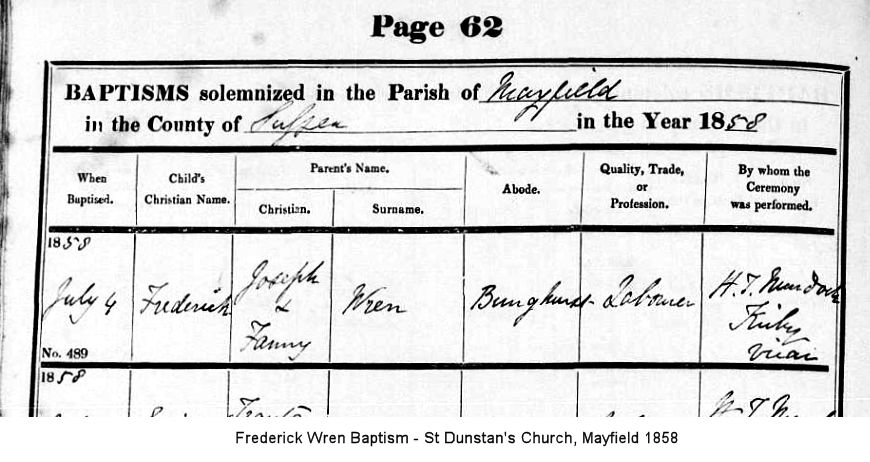 Page 62
BAPTISMS solemnized in the Parish of Mayfield
in the County of Sussex in the Year 1858
When Baptised.
Child's Christian Name.
Parent's Name.
Christian.
Surname.
Abode.
Quality, Trade, or Profession.
By whom the Ceremony was performed.
1858
July 4
Frederick
Joseph
&
Fanny
Wren
Labourer
H. T. Murdoch
Kirby
Vicar
No. 489
1858
Frederick Wren Baptism - St Dunstan's Church, Mayfield 1858